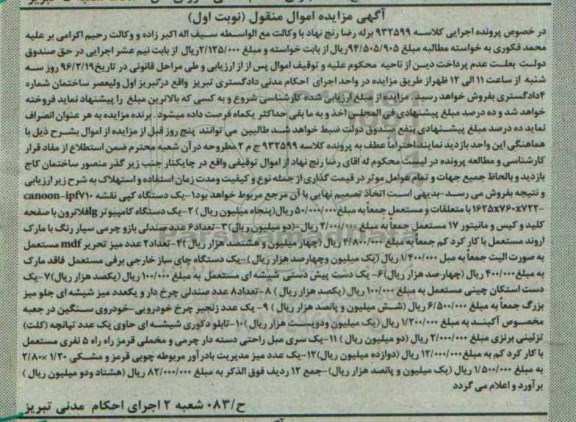 آگهی مزایده اموال منقول (نوبت اول)
در خصوص پرونده اجرایی کلاسه ۹۳۲۵۹۹ برله رضا رنج نهاد با وکالت مع الواسطه سیف اله اکبر زاده و وکالت رحیم اکرامی بر علیه
محمد فکوری به خواسته مطالبه مبلغ ۹۴/۵۰۵/۹۰۵ریال از بابت خواسته و مبلغ ۲/۱۲۵/۰۰۰ریال از بابت نیم عشر اجرایی در حق صندوق
دولت بعلت عدم پرداخت دین از ناحیه محکوم علیه و توقیف اموال پس از از ارزیابی و طی مراحل قانونی در تاریخ۹۶/۲/۱۹ روز سه
شنبه از ساعت ۱۱ الی ۱۲ ظهراز طریق مزایده در واحد اجرای احکام مدنی دادگستری تبریز واقع درتبریز اول ولیعصر ساختمان شماره
۴دادگستری بفروش خواهد رسید. مزایده از مبلغ ارزیابی شده کارشناسی شروع و به کسی که بالاترین مبلغ را پیشنهاد نماید فروخته
خواهد شد و ده درصد مبلغ پیشنهادی فی المجلس اخذ و به ما بقی حداکثر یکماه فرصت داده میشود. برنده مزایده به هر عنوان انصراف
نماید ده درصد مبلغ پیشنهادی بنفع صندوق دولت ضبط خواهد شد طالبین می توانند پنج روز قبل از مزایده از اموال بشرح ذیل با
هماهنگی این واحد بازدید نمایند احتراماً عطف به پرونده کلاسه ۹۳۲۵۹۹ ج م ۲ مطروحه در آن شعبه محترم ضمن استطلاع از مفاد قرار
کارشناسی و مطالعه پرونده در لیست محکوم له اقای رضا رنج نهاد از اموال توقیفی واقع در چایکنار جنب زیر گذر منصور ساختمان کاج
بازدید و بالحاظ جمیع جهات و تمام عوامل موثر در قیمت گذاری از جمله نوع و کیفیت ومدت زمان استفاده و استهلاک به شرح زیر ارزیابی
و نتیجه بفروش می رسد-بدیهی است اتخاذ تصمیم نهایی با آن مرجع مربوط خواهد بود۱-یک دستگاه کپی نقشه canoon-ipfv۱۰
-۱۶۲۵x۷۶۰x۷۲۲ با متعلقات و مستعمل جمعاً به مبلغ ۵۰/۰۰۰/۰۰۰ریال(پنجاه میلیون ریال) ۲-یک دستگاه کامپیوتر lgافلاترون با صفحه
کلید و کیس و مانیتور ۱۷ مستعمل جمعاً به مبلغ ۲/۰۰۰/۰۰۰ ریال -(دو میلیون ریال)۳-تعداد۶ عدد صندلی بازو چرمی سیار رنگ با مارک
اروند مستعمل با کار کرد کم جمعاً به مبلغ ۴/۸۰۰/۰۰۰ ریال (چهار میلیون و هشتصد هزار ریال)۴-تعداد۲ عدد میز تحریر mdf مستعمل
به صورت الیت جمعاً به مبل ۱/۴۰۰/۰۰۰ ریال (یک میلیون وچهارصد هزار ریال)-یک دستگاه چای ساز خارجی برقی مستعمل فاقد مارک
به مبلغ ۴۰۰/۰۰۰ ریال (چهارصد هزار ریال)۶- یک دست پیش دستی شیشه ای مستعمل به مبلغ ۱۰۰/۰۰۰ ریال (یکصد هزار ریال)۷-یک
دست استکان چینی مستعمل به مبلغ ۱۰۰/۰۰۰ ریال (یکصد هزار ریال) ۸-تعداد۸ عدد صندلی چرخ دار و یکعدد میز شیشه ای جلو میز
بزرگ جمعاً به مبلغ ۶/۵۰۰/۰۰۰ ریال (شش میلیون و پانصد هزار ریال) ۹-یک عدد زنجیر چرخ خودرویی-خودروی سنگین در جعبه
مخصوص آکبند به مبلغ ۱/۲۰۰/۰۰۰ ریال (یک میلیون ودویست هزار ریال)۱۰-تابلو دکوری شیشه ای حاوی یک عدد تپانچه (کلت)
تزئینی برنزی مبلغ ۲/۰۰۰/۰۰۰ ریال (دو میلیون ریال) ۱۱-یک سری مبل راحتی دسته دار چرمی و مخملی قرمز راه راه ۵ نفری مستعمل
با کار کرد کم به مبلغ ۱۲/۰۰۰/۰۰۰ ریال (دوازده میلیون ریال)۱۲-یک عدد میز مدیریت بادرآور مربوطه چوبی قرمز و مشکی ۱/۲۰ ×۲/۸۰
به مبلغ ۱/۵۰۰/۰۰۰ ریال (یک میلیون و پانصد هزار ریال)-جمع ۱۲ ردیف فوق الذکر به مبلغ ۸۲/۰۰۰/۰۰۰ ریال (هشتاد ودو میلیون ریال)
برآورد و اعلام می گردد
ح/۰۸۳ شعبه ۲ اجرای احکام مدنی تبریز